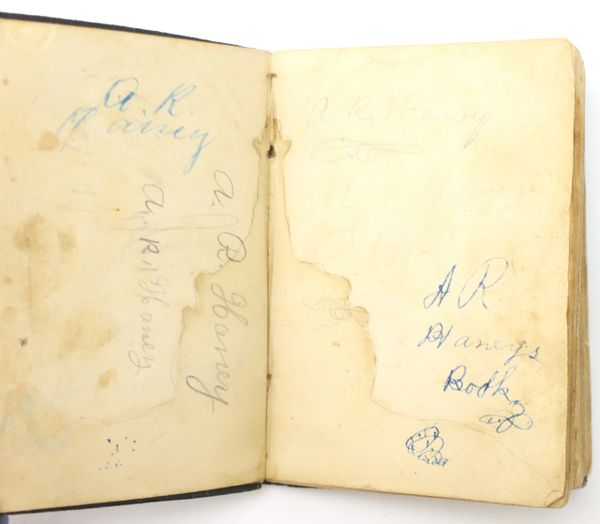 A. R.
Haney
A. R. Haney
A. R. Haney
A. R. Haney
A R
Haneys
Book